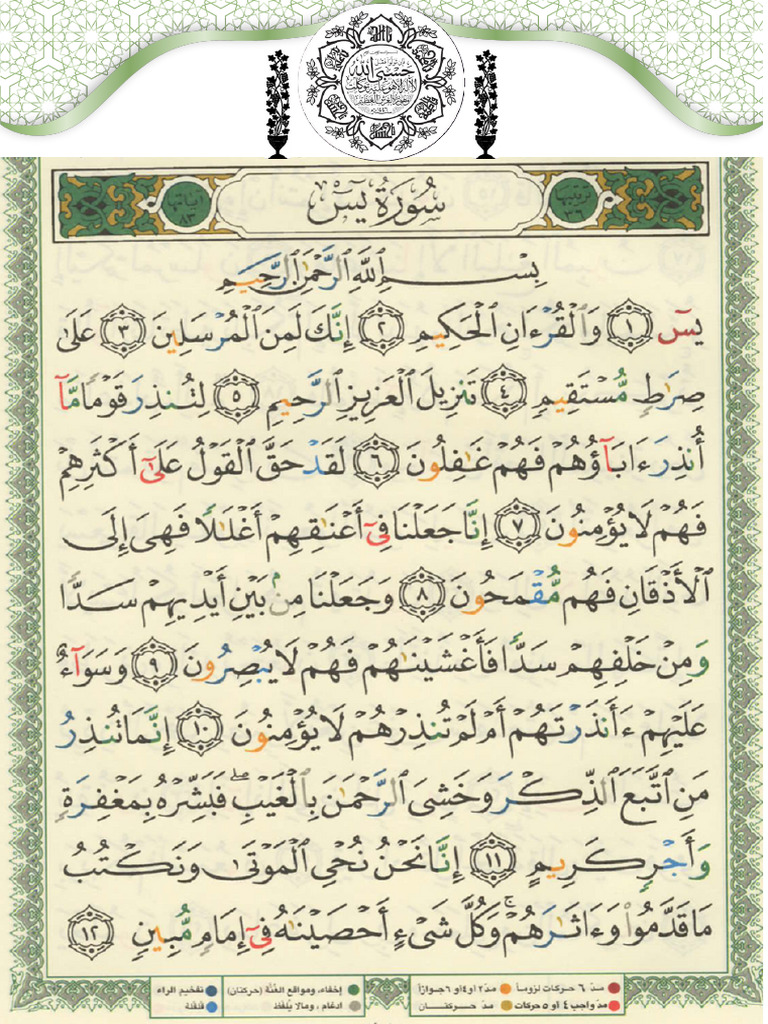 حسبي الله
لا إله إلا هو عليه توكلت
وهو رب العرش العظيم
ترتيبها ٣٦
سُورَةُ يسٓ
آياتها ٨٣
بِسْمِ ٱللَّهِ ٱلرَّحْمَٰنِ ٱلرَّحِيمِ
يسٓ ١ وَٱلْقُرْءَانِ ٱلْحَكِيمِ ٢ إِنَّكَ لَمِنَ ٱلْمُرْسَلِينَ ٣ عَلَىٰ
صِرَٰطٍ مُّسْتَقِيمٍ ٤ تَنزِيلَ ٱلْعَزِيزِ ٱلرَّحِيمِ ٥ لِتُنذِرَ قَوْمًا مَّآ
أُنذِرَ ءَابَآؤُهُمْ فَهُمْ غَٰفِلُونَ ٦ لَقَدْ حَقَّ ٱلْقَوْلُ عَلَىٰٓ أَكْثَرِهِمْ
فَهُمْ لَا يُؤْمِنُونَ ٧ إِنَّا جَعَلْنَا فِىٓ أَعْنَٰقِهِمْ أَغْلَٰلًا فَهِىَ إِلَى
ٱلْأَذْقَانِ فَهُم مُّقْمَحُونَ ٨ وَجَعَلْنَا مِنۢ بَيْنِ أَيْدِيهِمْ سَدًّا
وَمِنْ خَلْفِهِمْ سَدًّا فَأَغْشَيْنَٰهُمْ فَهُمْ لَا يُبْصِرُونَ ٩ وَسَوَآءٌ
عَلَيْهِمْ ءَأَنذَرْتَهُمْ أَمْ لَمْ تُنذِرْهُمْ لَا يُؤْمِنُونَ ١٠ إِنَّمَا تُنذِرُ
مَنِ ٱتَّبَعَ ٱلذِّكْرَ وَخَشِىَ ٱلرَّحْمَٰنَ بِٱلْغَيْبِ ۖ فَبَشِّرْهُ بِمَغْفِرَةٍ
وَأَجْرٍ كَرِيمٍ ١١ إِنَّا نَحْنُ نُحْىِ ٱلْمَوْتَىٰ وَنَكْتُبُ
مَا قَدَّمُوا۟ وَءَاثَٰرَهُمْ ۚ وَكُلَّ شَىْءٍ أَحْصَيْنَٰهُ فِىٓ إِمَامٍ مُّبِينٍ ١٢
مدّ ٦ حركات لزوماً مدّ ٢ أو ٤ أو ٦ جوازاً إخفاء، ومواقع الغُنَّة (حركتان) تفخيم الراء
مدّ واجب ٤ أو ٥ حركات مدّ حركتان ادغام، وما لا يُلفظ قلقلة